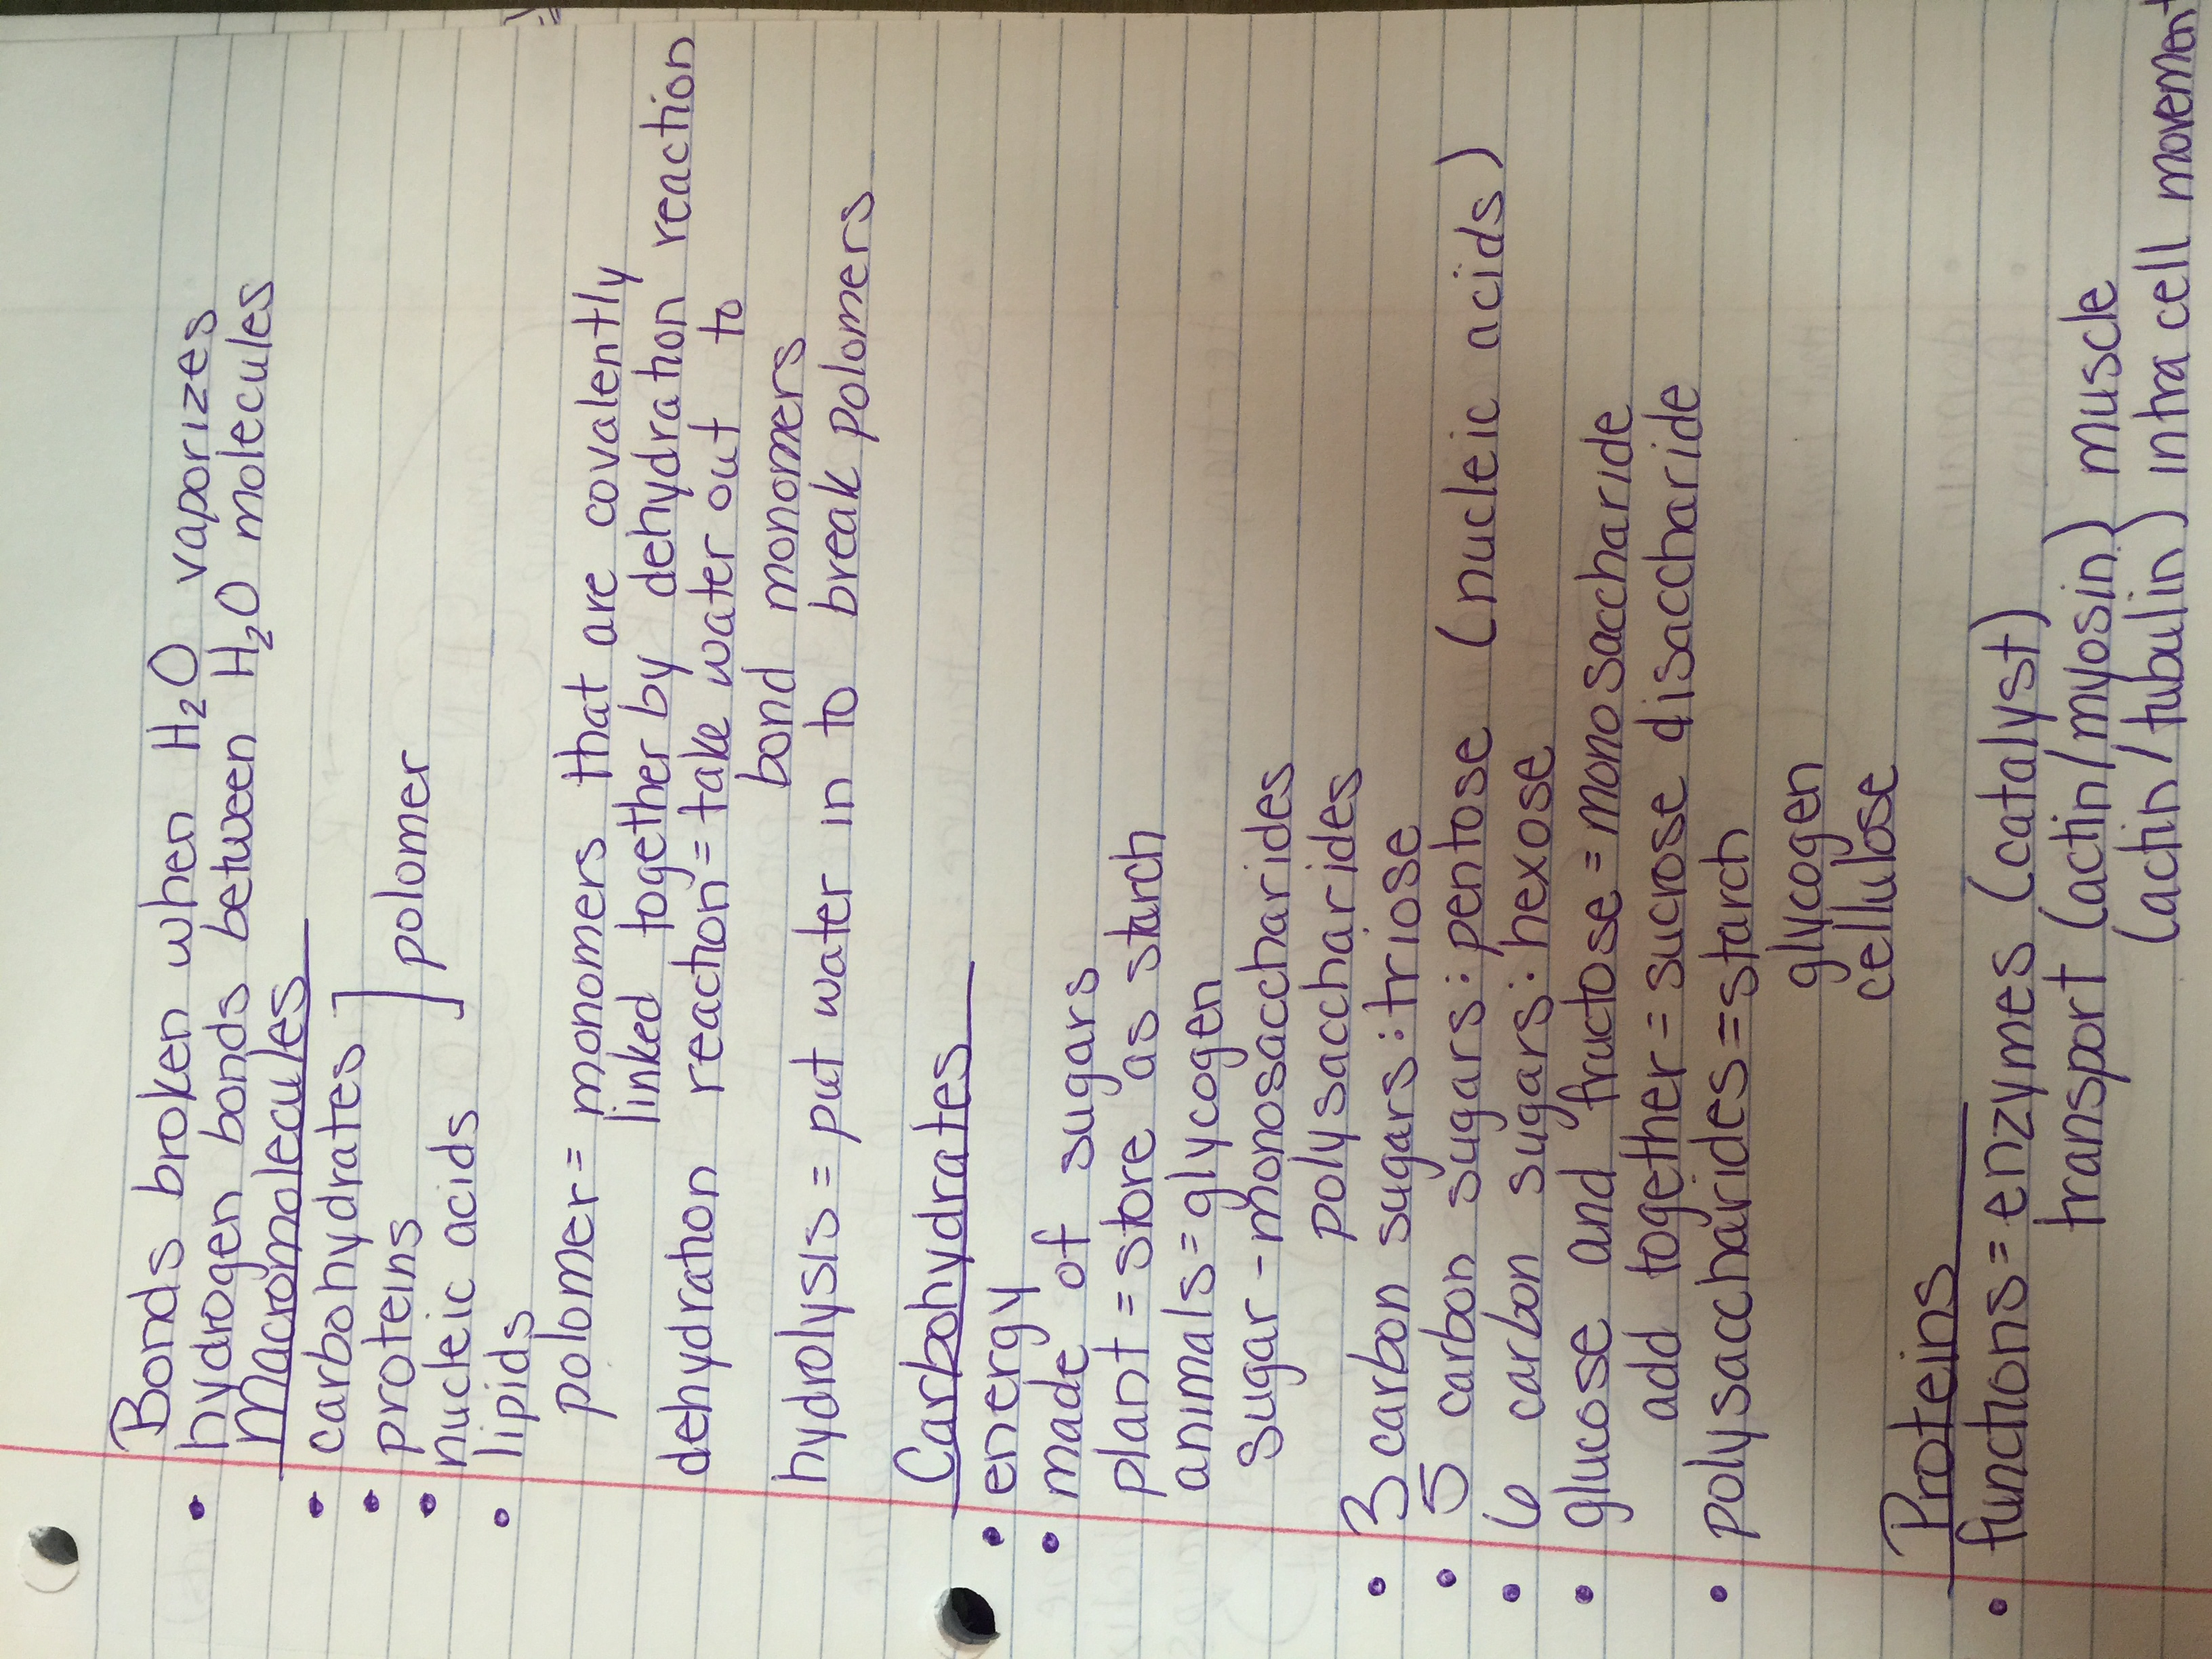 Bonds broken when H₂O vaporizes
• hydrogen bonds between H₂O molecules
Macromolecules
• carbohydrates
• proteins ] polomer
• nucleic acids
• lipids
polomer = monomers that are covalently
linked together by dehydration reaction
dehydration reaction = take water out to
bond monomers
hydrolysis = put water in to break polomers
Carbohydrates
• energy
• made of sugars
plant = store as starch
animals = glycogen
sugar - monosaccharides
polysaccharides
• 3 carbon sugars : triose
• 5 carbon sugars : pentose (nucleic acids)
• 6 carbon sugars : hexose
• glucose and fructose = monosaccharide
add together = sucrose disaccharide
• polysaccharides = starch
glycogen
cellulose
Proteins
• functions = enzymes (catalyst)
transport (actin/myosin) muscle
(actin/tubulin) intra cell movement